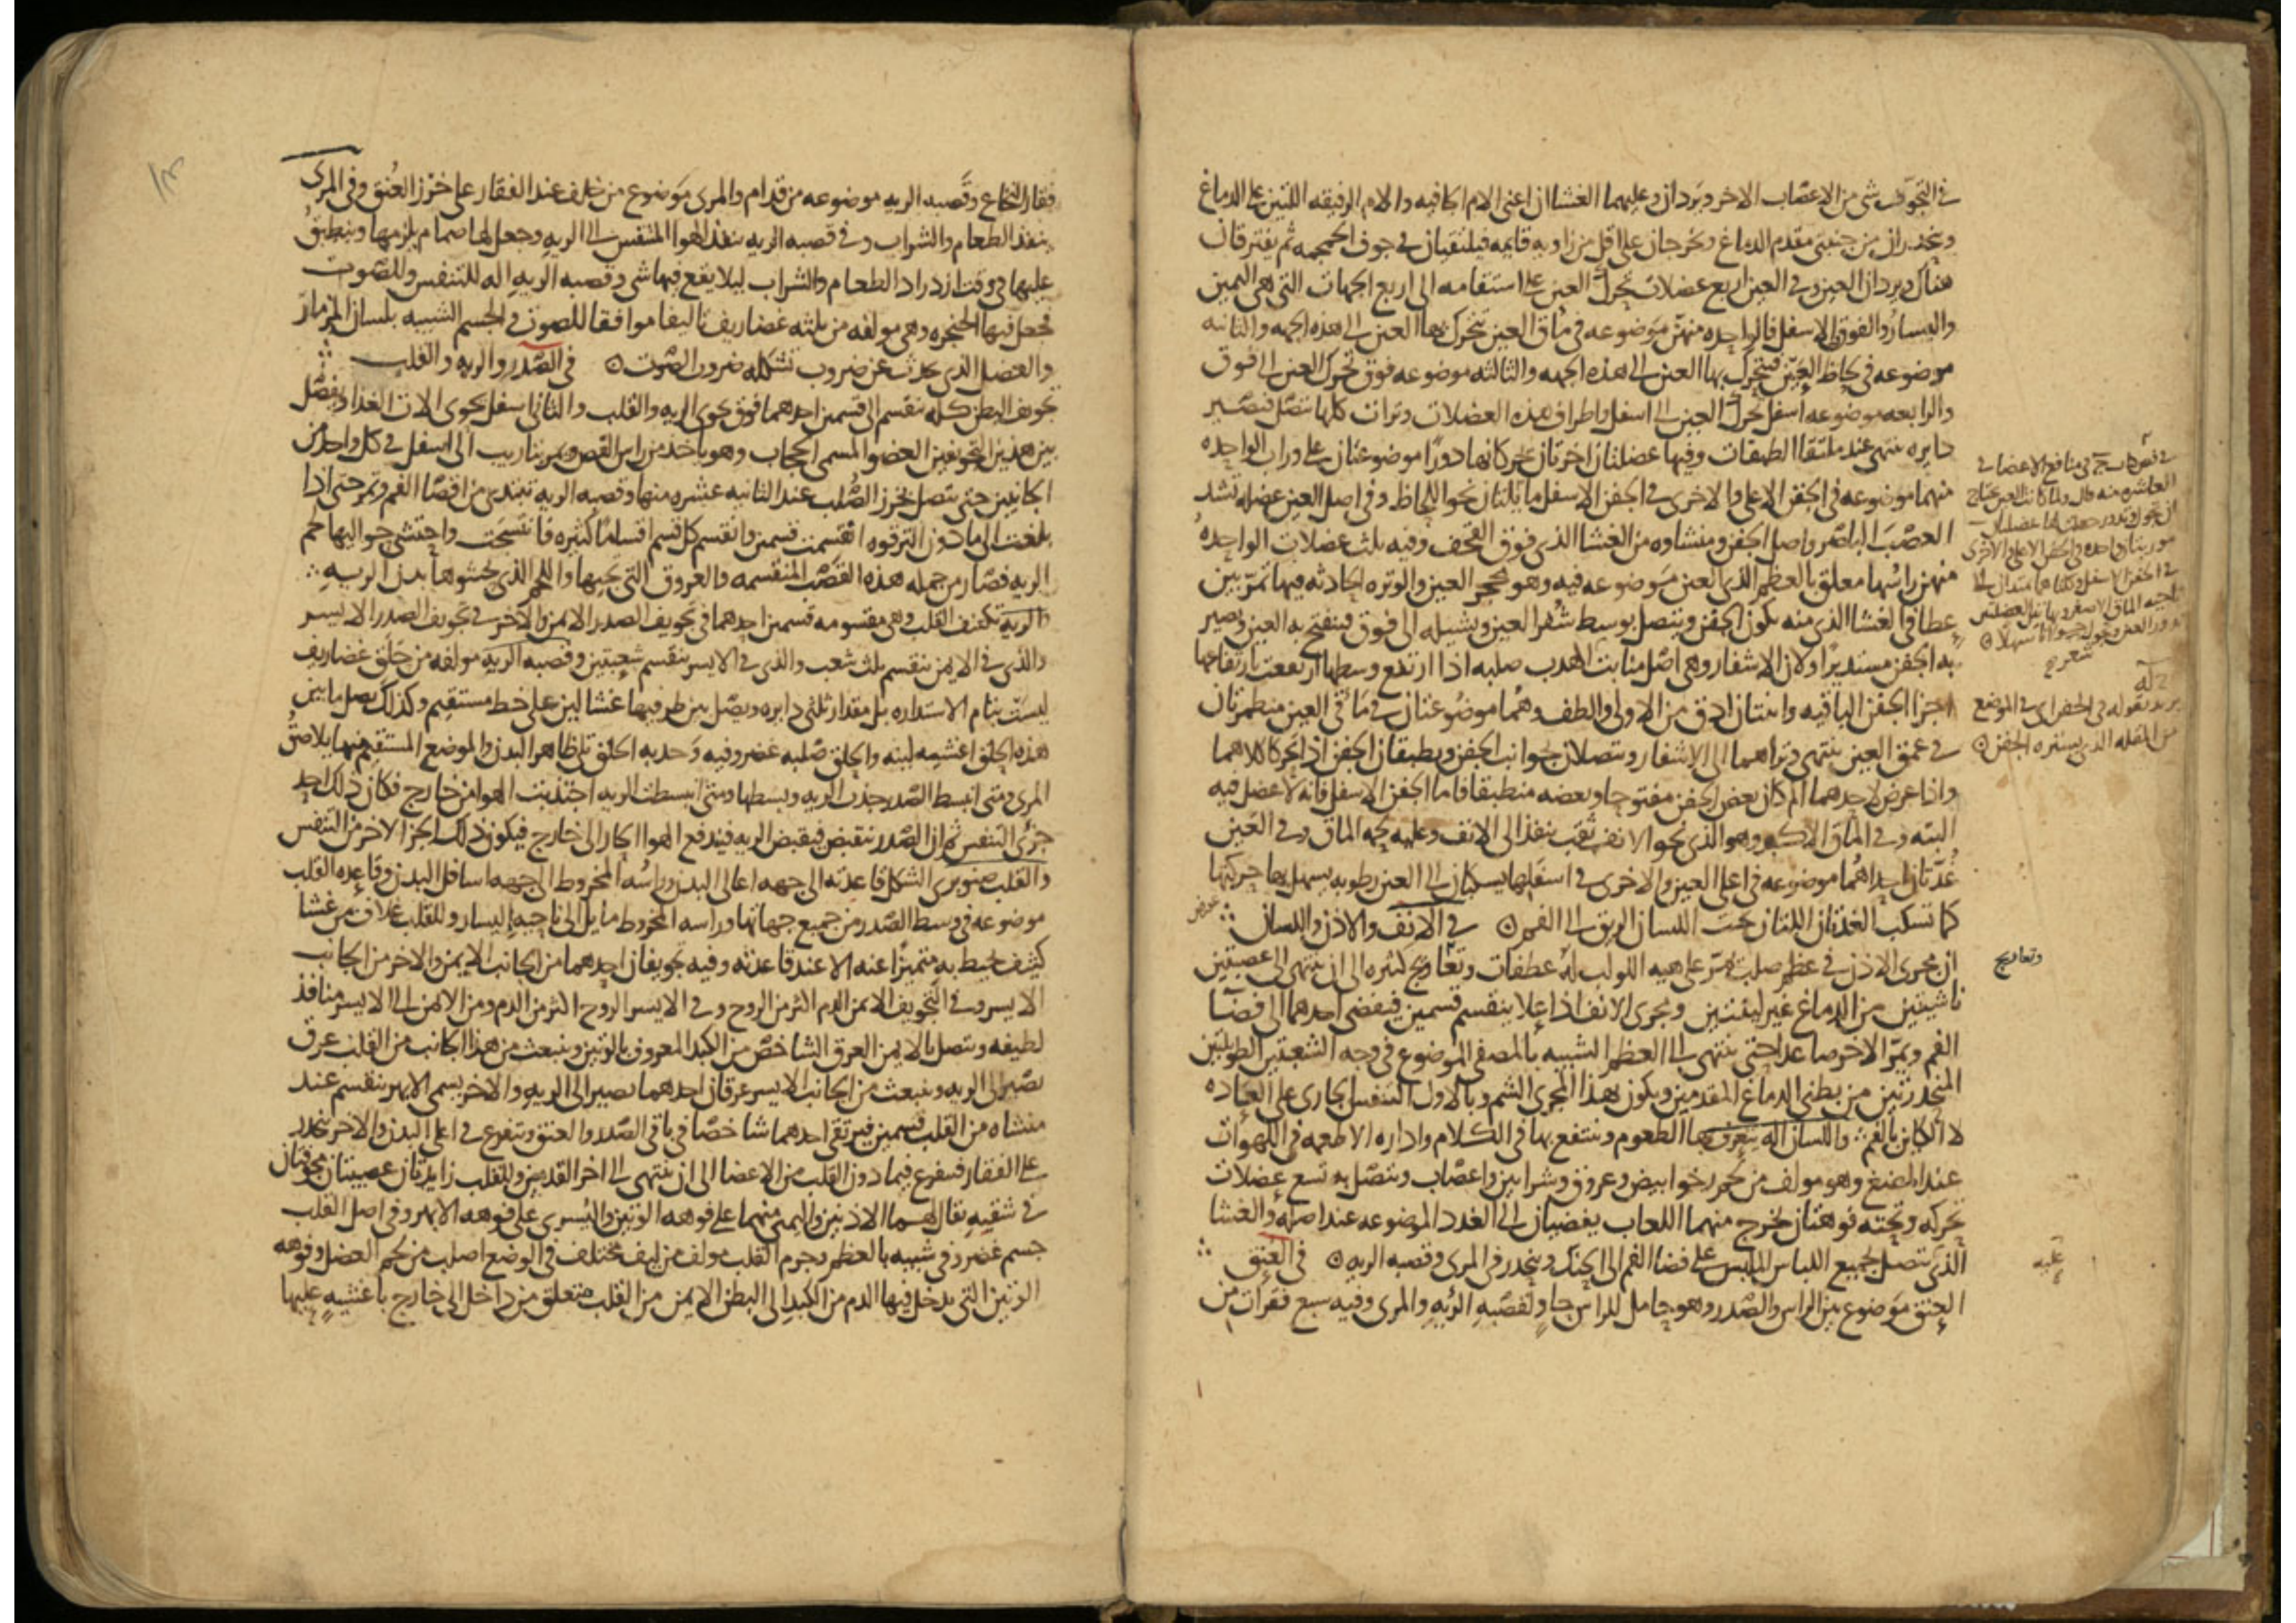 في التجويف شي من الاعصاب الاخر ويردان وعليهما الغشاان اعني الام الجافيه والام الرقيقه اللتين على الدماغ
وينحدران من جنبتي مقدم الدماغ ويخرجان على اقل من زاويه قايمه فيلتقيان في جوف الجمجمه ثم يفترقان
هناك ويردان العين وفي العين اربع عضلات تحرك العين على استقامه الى اربع الجهات التي هي اليمين
واليسار والفوق والاسفل فالواحده منهن موضوعه في ماق العين تتحرك بها العين الى هذه الجهه والثانيه
موضوعه في لحاظ العين فيتحرك بها العين الى هذه الجهه والثالثه موضوعه فوق تحرك العين الى فوق
والرابعه موضوعه اسفل تحرك العين الى اسفل واطراف هذه العضلات وترات كلها تتصل فتصير
دايره تنتهي عند ملتقا الطبقات وفيها عضلتان اخرتان تحركانها دورا موضوعتان على وراب الواحده
منهما موضوعه في الجفن الاعلى والاخرى في الجفن الاسفل مايلتان نحو اللحاظ وفي اصل العين عضله تشد
العصب الباصر واصل الجفن ومنشاوه من الغشا الذي فوق القحف وفيه ثلث عضلات الواحده
منهن راسها معلق بالعظم الذي العين موضوعه فيه وهو محجر العين والوتره الحادثه فيها تمر بين
عطافي الغشا الذي منه يكون الجفن ويتصل بوسط شفر العين وتشيله الى فوق فينفتح به العين ويصير
به الجفن مستديرا ولان الاشفار وهي اصل منابت الهدب صلبه اذا ارتفع وسطها ارتفعت بارتفاعها
اجزا الجفن الباقيه واثنتان ادق من الاولى والطف وهما موضوعتان في ماقي العين منطمرتان
في عمق العين ينتهي وتراهما الى الاشفار وتتصلان بجوانب الجفن ويطبقان الجفن اذا تحركا كلاهما
واذا عرض لاحدهما الم كان بعض الجفن مفتوحا وبعضه منطبقا فاما الجفن الاسفل فانه لا عضل فيه
البته وفي الماق الاكبر وهو الذي نحو الانف ثقب ينفذ الى الانف وعليه لحمه الماق وفي العين
غدتان احداهما موضوعه في اعلى العين والاخرى في اسفلها يسكبان الى العين رطوبه يسهل بها حركتها
كما تسكب الغدتان اللتان تحت اللسان الريق الى الفم ۞ في الانف والاذن واللسان ∴
ان مجرى الاذن في عظم صلب تمر على هيه اللولب له عطفات وتعاريج كثيره الى ان ينتهي الى عصبتين
ناشيتين من الدماغ غير لينتين ومجرى الانف اذا علا ينقسم قسمين فيفضي احدهما الى فضا
الفم ويمر الاخر صاعدا حتى ينتهي الى العظم الشبيه بالمصفى الموضوع في وجه الشعبتين الطويلتين
المنحدرتين من بطني الدماغ المقدمين ويكون بهذا المجرى الشم وبالاول التنفس الجاري على العاده
لا الكاين بالفم ∴ واللسان اله يتعرف بها الطعوم وينتفع بها في الكلام واداره الاطعمه في اللهوات
عند المضغ وهو مولف من لحم رخو ابيض وعروق وشرايين واعصاب وتتصل به تسع عضلات
تحركه وتحته فوهتان يخرج منهما اللعاب يفضيان الى الغدد الموضوعه عند اصله والغشا
الذي يتصل بجميع اللباس الملبس على فضا الفم الى الحنك وينحدر في المرى وقصبه الريه ۞ في العنق ∴
العنق موضوع بين الراس والصدر وهو حامل للراس حاو لقصبه الريه والمرى وفيه سبع فقرات من
في منافع الاعضا في
العاشره منه قال ولما كانت العين تحتاج
الجفن الاعلى والاخرى
في الجفن الاسفل وكلتاهما
يريد بقوله في الجفن اي في الموضع
من المقله الذي يستره الجفن ۞
وتعاريج
عليه
فقار النخاع وقصبه الريه موضوعه من قدام والمرى موضوع من خلف عند الفقار على خرز العنق وفي المرى
ينفذ الطعام والشراب وفي قصبه الريه ينفذ الهوا المتنفس الى الريه وجعل لها صمام يلزمها وينطبق
عليها في وقت ازدراد الطعام والشراب ليلا يقع فيها شي وقصبه الريه اله للتنفس وللصوت
فجعل فيها الحنجره وهي مولفه من ثلثه غضاريف تاليفا موافقا للصوت وفي الجسم الشبيه بلسان المزمار
والعضل الذي يحدث عن ضروب تشكله ضروب الصوت ۞ في الصدر والريه والقلب ∴
تجويف البطن كله ينقسم الى قسمين احدهما فوق يحوي الريه والقلب والثاني اسفل يحوي الات الغذا ويفصل
بين هذين التجويفين العضو المسمى الحجاب وهو ياخذ من راس القص ويمر بتاريب الى اسفل في كل واحد من
الجانبين حتى يتصل بخرز الصلب عند الثانيه عشره منها وقصبه الريه تبتدي من اقصا الفم وتمر حتى اذا
بلغت الى ما دون الترقوه انقسمت قسمين وانقسم كل قسم اقساما كثيره فانتسجت واحتشى حواليها لحم
الريه فصار من جمله هذه القصب المنقسمه والعروق التي تحتها واللحم الذي يحشوها بدن الريه ∴
الريه تكتنف القلب وهي مقسومه قسمين احدهما في تجويف الصدر الايمن والاخر في تجويف الصدر الايسر
والذي في الايمن ينقسم ثلث شعب والذي في الايسر ينقسم شعبتين وقصبه الريه مولفه من حلق غضاريف
ليست بتام الاستداره بل مقدار ثلثي دايره ويصل بين طرفيها غشا لين على خط مستقيم وكذلك يصل ما بين
هذه الحلق اغشيه لينه والحلق صلبه غضروفيه وحدبه الحلق تلي ظاهر البدن والموضع المستقيم منها يلاصق
المرى ومتى انبسط الصدر جذب الريه وبسطها ومتى انبسطت الريه اجتذبت الهوا من خارج فكان ذلك احد
جزئي التنفس ثم ان الصدر ينقبض فيقبض الريه فيندفع الهوا الحار الى خارج فيكون ذلك الجزا الاخر من التنفس
والقلب صنوبري الشكل قاعدته الى جهه اعالي البدن وراسه المخروط الى جهه اسافل البدن وقاعده القلب
موضوعه في وسط الصدر من جميع جهاتها وراسه المخروط مايل الى ناحيه اليسار وللقلب غلاف من غشا
كثيف يحيط به متميزا عنه الا عند قاعدته وفيه تجويفان احدهما من الجانب الايمن والاخر من الجانب
الايسر وفي التجويف الايمن الدم اكثر من الروح وفي الايسر الروح اكثر من الدم ومن الايمن الى الايسر منافذ
لطيفه ويتصل بالايمن العرق الشاخص من الكبد المعروف بالوتين وينبعث من هذا الجانب من القلب عرق
يصير الى الريه وينبعث من الجانب الايسر عرقان احدهما يصير الى الريه والاخر يسمى الابهر ينقسم عند
منشاه من القلب قسمين فيرتقي احدهما شاخصا في باقي الصدر والعنق ويتفرع في اعلى البدن والاخر ينحدر
على الفقار فيتفرع فيما دون القلب من الاعضا الى ان ينتهي الى اخر القدمين وللقلب زايدتان عصبيتان مجوفتان
في شقيه يقال لهما الاذنين واليمنى منهما على فوهه الوتين واليسرى على فوهه الابهر وفي اصل القلب
جسم غضروفي شبيه بالعظم وجرم القلب مولف من ليف مختلف في الوضع اصلب من لحم العضل وفوهه
الوتين التي يدخل فيها الدم من الكبد الى البطن الايمن من القلب متعلق من داخل الى خارج باغشيه عليها